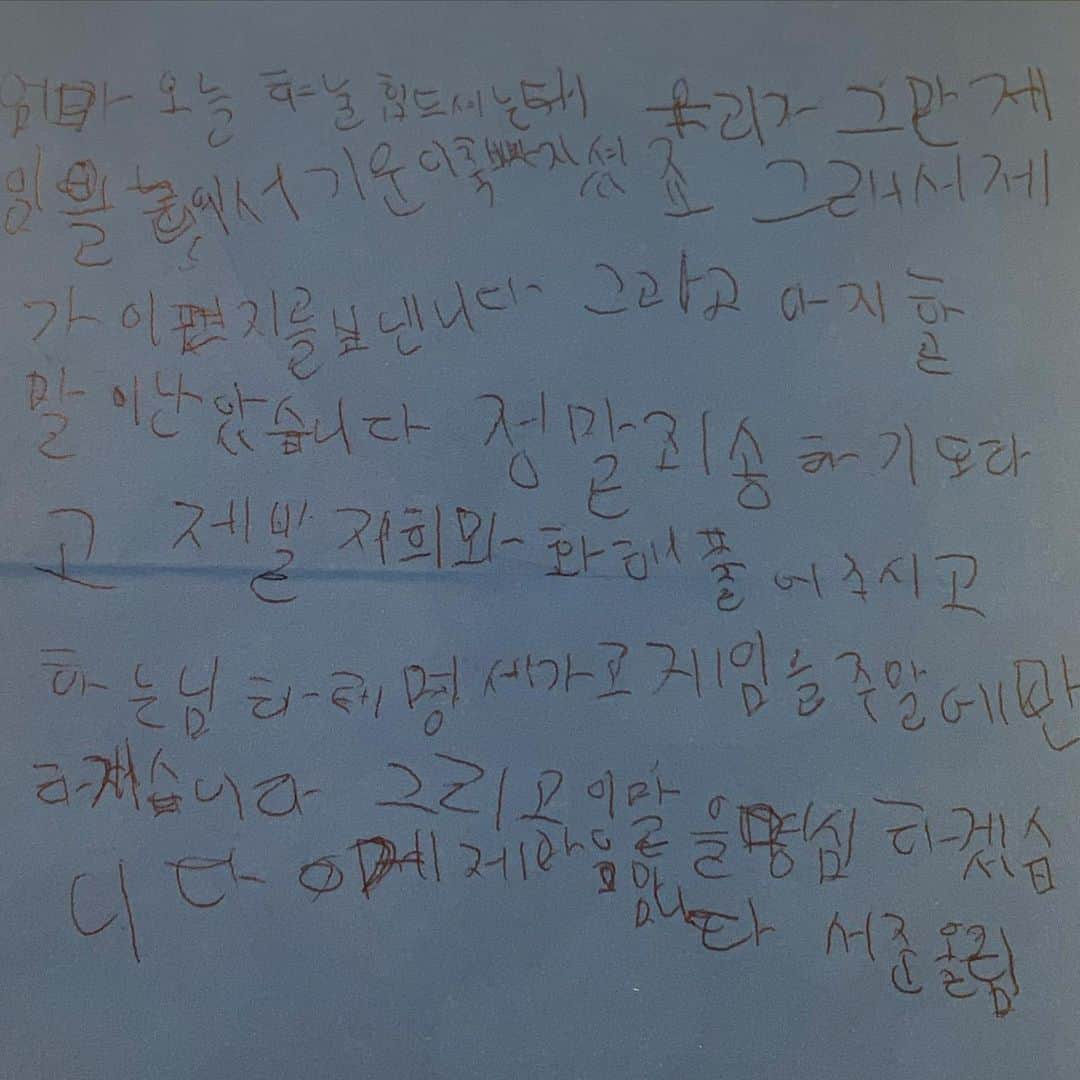 엄마 오늘 하날 힘드세는데 우리가 그만 제
임을 놀에서 기운이 쭉빠지셨죠 그래서 제
가 이편지를 보낸니다 그라고 아지 할
말이 난았습니다 정말 죄송하기도 하
고 제발 저희와 화해 풀어주시고
하는님 하테 명세가고 게임을 주말에만
하겠습니다 그리고 이말을 명심 하겠습
니다 이제 제 마음임니다 서준올림